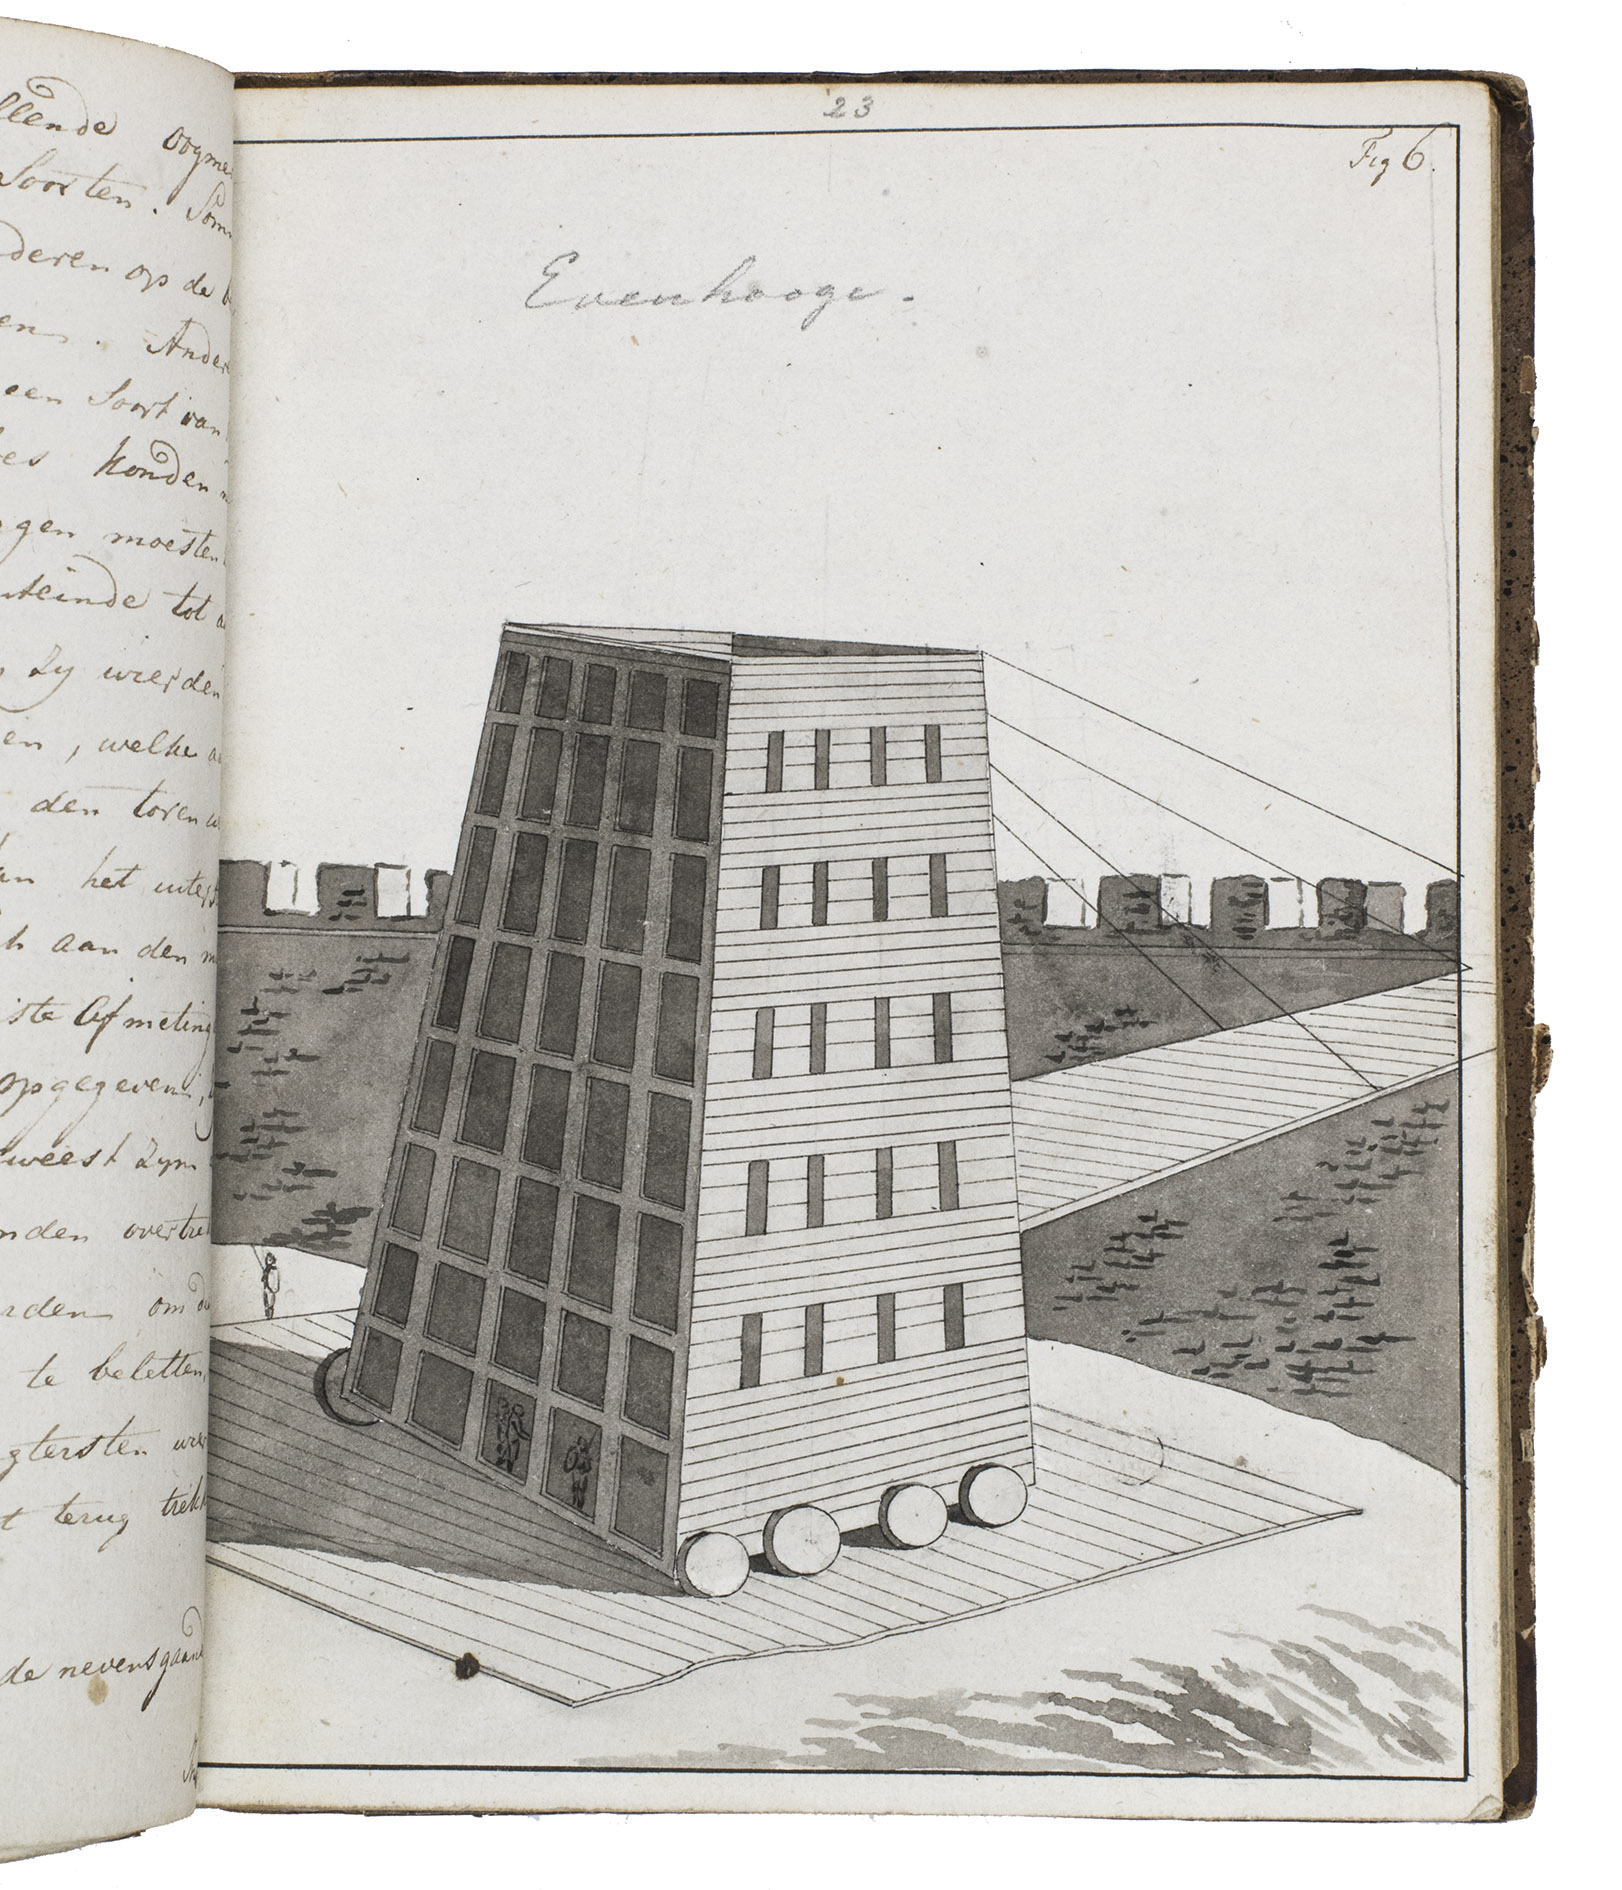 llende oogme
Soorten. Som
deren op de
en. Ander
een Soort van
es konden
gen moesten
uiteinde tot a
Zy wierden
en, welke a
den toren w
an het uitegs
h aan den m
iste Afmeting
opgegeven,
weest Zyn
nden overtre
rden om de
te beletten,
gtersten wer
t terug trekk
de nevensgaand
23
Fig 6.
Evenhooge.